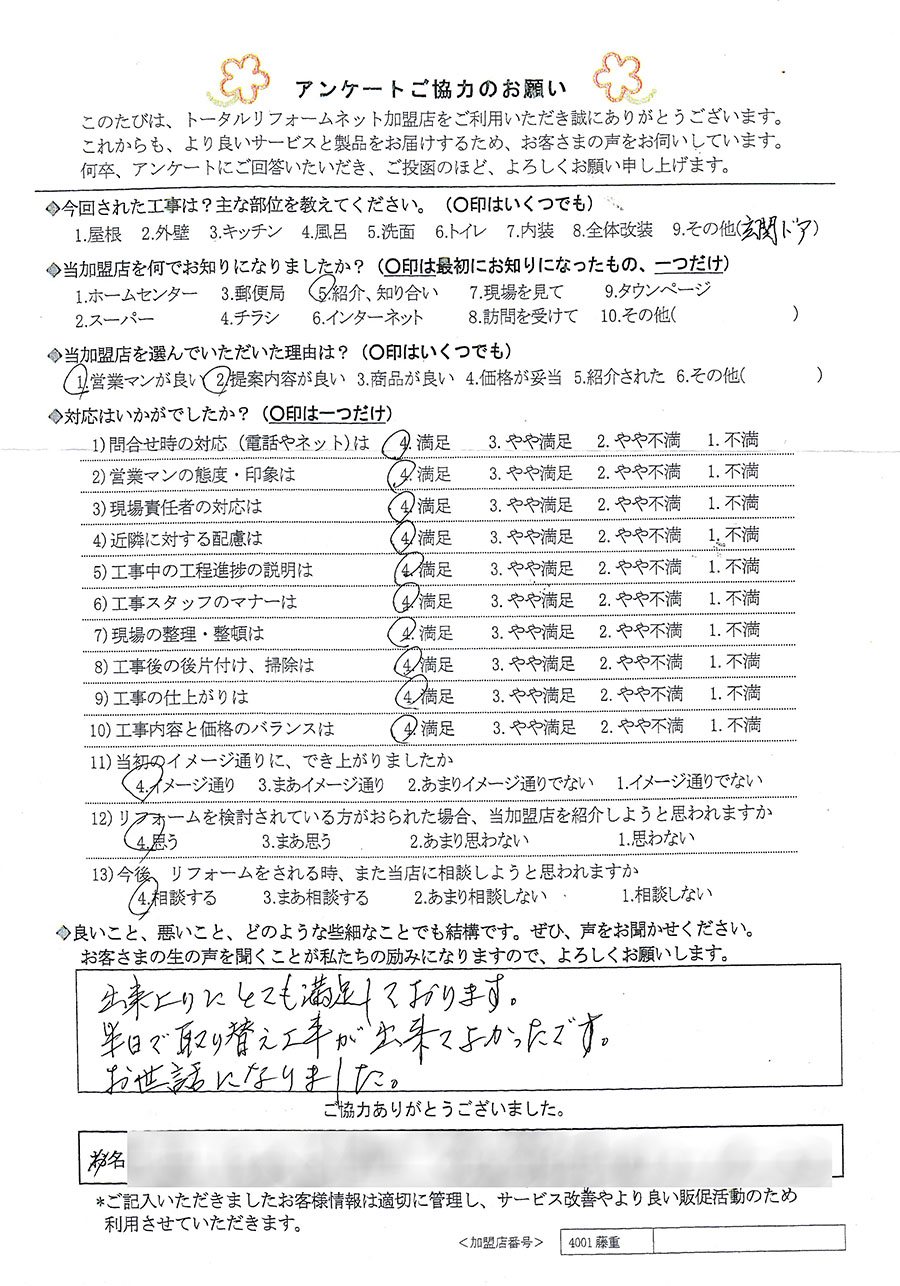 アンケートご協力のお願い
このたびは、トータルリフォームネット加盟店をご利用いただき誠にありがとうございます。
これからも、より良いサービスと製品をお届けするため、お客さまの声をお伺いしています。
何卒、アンケートにご回答いたいだき、ご投函のほど、よろしくお願い申し上げます。
◈今回された工事は？主な部位を教えてください。（〇印はいくつでも）
1.屋根 2.外壁 3.キッチン 4.風呂 5.洗面 6.トイレ 7.内装 8.全体改装 9.その他(玄関ドア)
◈当加盟店を何でお知りになりましたか？（〇印は最初にお知りになったもの、一つだけ）
1.ホームセンター 3.郵便局 5.紹介、知り合い 7.現場を見て 9.タウンページ
2.スーパー 4.チラシ 6.インターネット 8.訪問を受けて 10.その他( )
◈当加盟店を選んでいただいた理由は？（〇印はいくつでも）
1.営業マンが良い 2.提案内容が良い 3.商品が良い 4.価格が妥当 5.紹介された 6.その他( )
◈対応はいかがでしたか？（〇印は一つだけ）
1)問合せ時の対応（電話やネット)は 4.満足 3.やや満足 2.やや不満 1.不満
2)営業マンの態度・印象は 4.満足 3.やや満足 2.やや不満 1.不満
3)現場責任者の対応は 4.満足 3.やや満足 2.やや不満 1.不満
4)近隣に対する配慮は 4.満足 3.やや満足 2.やや不満 1.不満
5)工事中の工程進捗の説明は 4.満足 3.やや満足 2.やや不満 1.不満
6)工事スタッフのマナーは 4.満足 3.やや満足 2.やや不満 1.不満
7)現場の整理・整頓は 4.満足 3.やや満足 2.やや不満 1.不満
8)工事後の後片付け、掃除は 4.満足 3.やや満足 2.やや不満 1.不満
9)工事の仕上がりは 4.満足 3.やや満足 2.やや不満 1.不満
10)工事内容と価格のバランスは 4.満足 3.やや満足 2.やや不満 1.不満
11)当初のイメージ通りに、でき上がりましたか
4.イメージ通り 3.まあイメージ通り 2.あまりイメージ通りでない 1.イメージ通りでない
12)リフォームを検討されている方がおられた場合、当加盟店を紹介しようと思われますか
4.思う 3.まあ思う 2.あまり思わない 1.思わない
13)今後、リフォームをされる時、また当店に相談しようと思われますか
4.相談する 3.まあ相談する 2.あまり相談しない 1.相談しない
◈良いこと、悪いこと、どのような些細なことでも結構です。ぜひ、声をお聞かせください。
お客さまの生の声を聞くことが私たちの励みになりますので、よろしくお願いします。
出来上りにとても満足しております。
半日で取り替え工事が出来てよかったです。
お世話になりました。
ご協力ありがとうございました。
名
*ご記入いただきましたお客様情報は適切に管理し、サービス改善やより良い販促活動のため
利用させていただきます。
＜加盟店番号＞ 4001 藤重